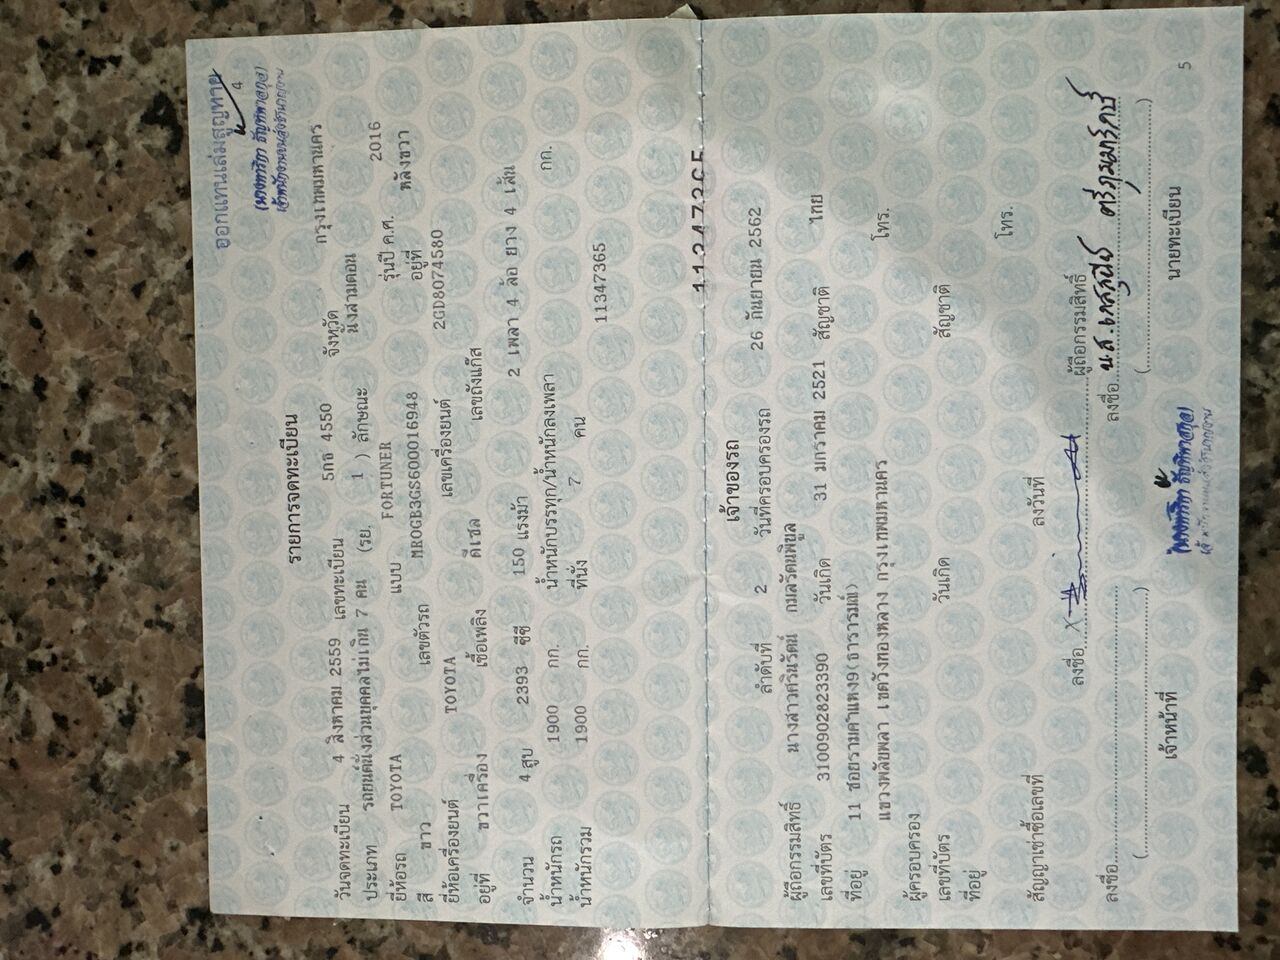 ออกแทนเล่มสูญหาย
4
รายการจดทะเบียน
วันจดทะเบียน 4 สิงหาคม 2559 เลขทะเบียน 5กธ 4550 จังหวัด กรุงเทพมหานคร
ประเภท รถยนต์นั่งส่วนบุคคลไม่เกิน 7 คน (รย. 1 ) ลักษณะ นั่งสามตอน
ยี่ห้อรถ TOYOTA แบบ FORTUNER รุ่นปี ค.ศ. 2016
สี ขาว เลขตัวรถ MR0GB3GS600016948 อยู่ที่ หลังขวา
ยี่ห้อเครื่องยนต์ TOYOTA เลขเครื่องยนต์ 2GD8074580
อยู่ที่ ขวาเครื่อง เชื้อเพลิง ดีเซล เลขถังแก๊ส
จำนวน 4 สูบ 2393 ซีซี 150 แรงม้า 2 เพลา 4 ล้อ ยาง 4 เส้น
น้ำหนักรถ 1900 กก. น้ำหนักบรรทุก/น้ำหนักลงเพลา กก.
น้ำหนักรวม 1900 กก. ที่นั่ง 7 คน 11347365
เจ้าของรถ
ลำดับที่ 2 วันที่ครอบครองรถ 26 กันยายน 2562
ผู้ถือกรรมสิทธิ์ นางสาวศรินรัตน์ กมลรัตนพิบูล
เลขที่บัตร 3100902823390 วันเกิด 31 มกราคม 2521 สัญชาติ ไทย
ที่อยู่ 11 ซอยรามคำแหง9(ธารารมณ์) โทร.
แขวงพลับพลา เขตวังทองหลาง กรุงเทพมหานคร
ผู้ครอบครอง
เลขที่บัตร วันเกิด สัญชาติ
ที่อยู่ โทร.
สัญญาเช่าซื้อเลขที่ ลงวันที่
ลงชื่อ ผู้ถือกรรมสิทธิ์
ลงชื่อ ลงชื่อ น.ส.
( ) ( )
เจ้าหน้าที่ นายทะเบียน
5